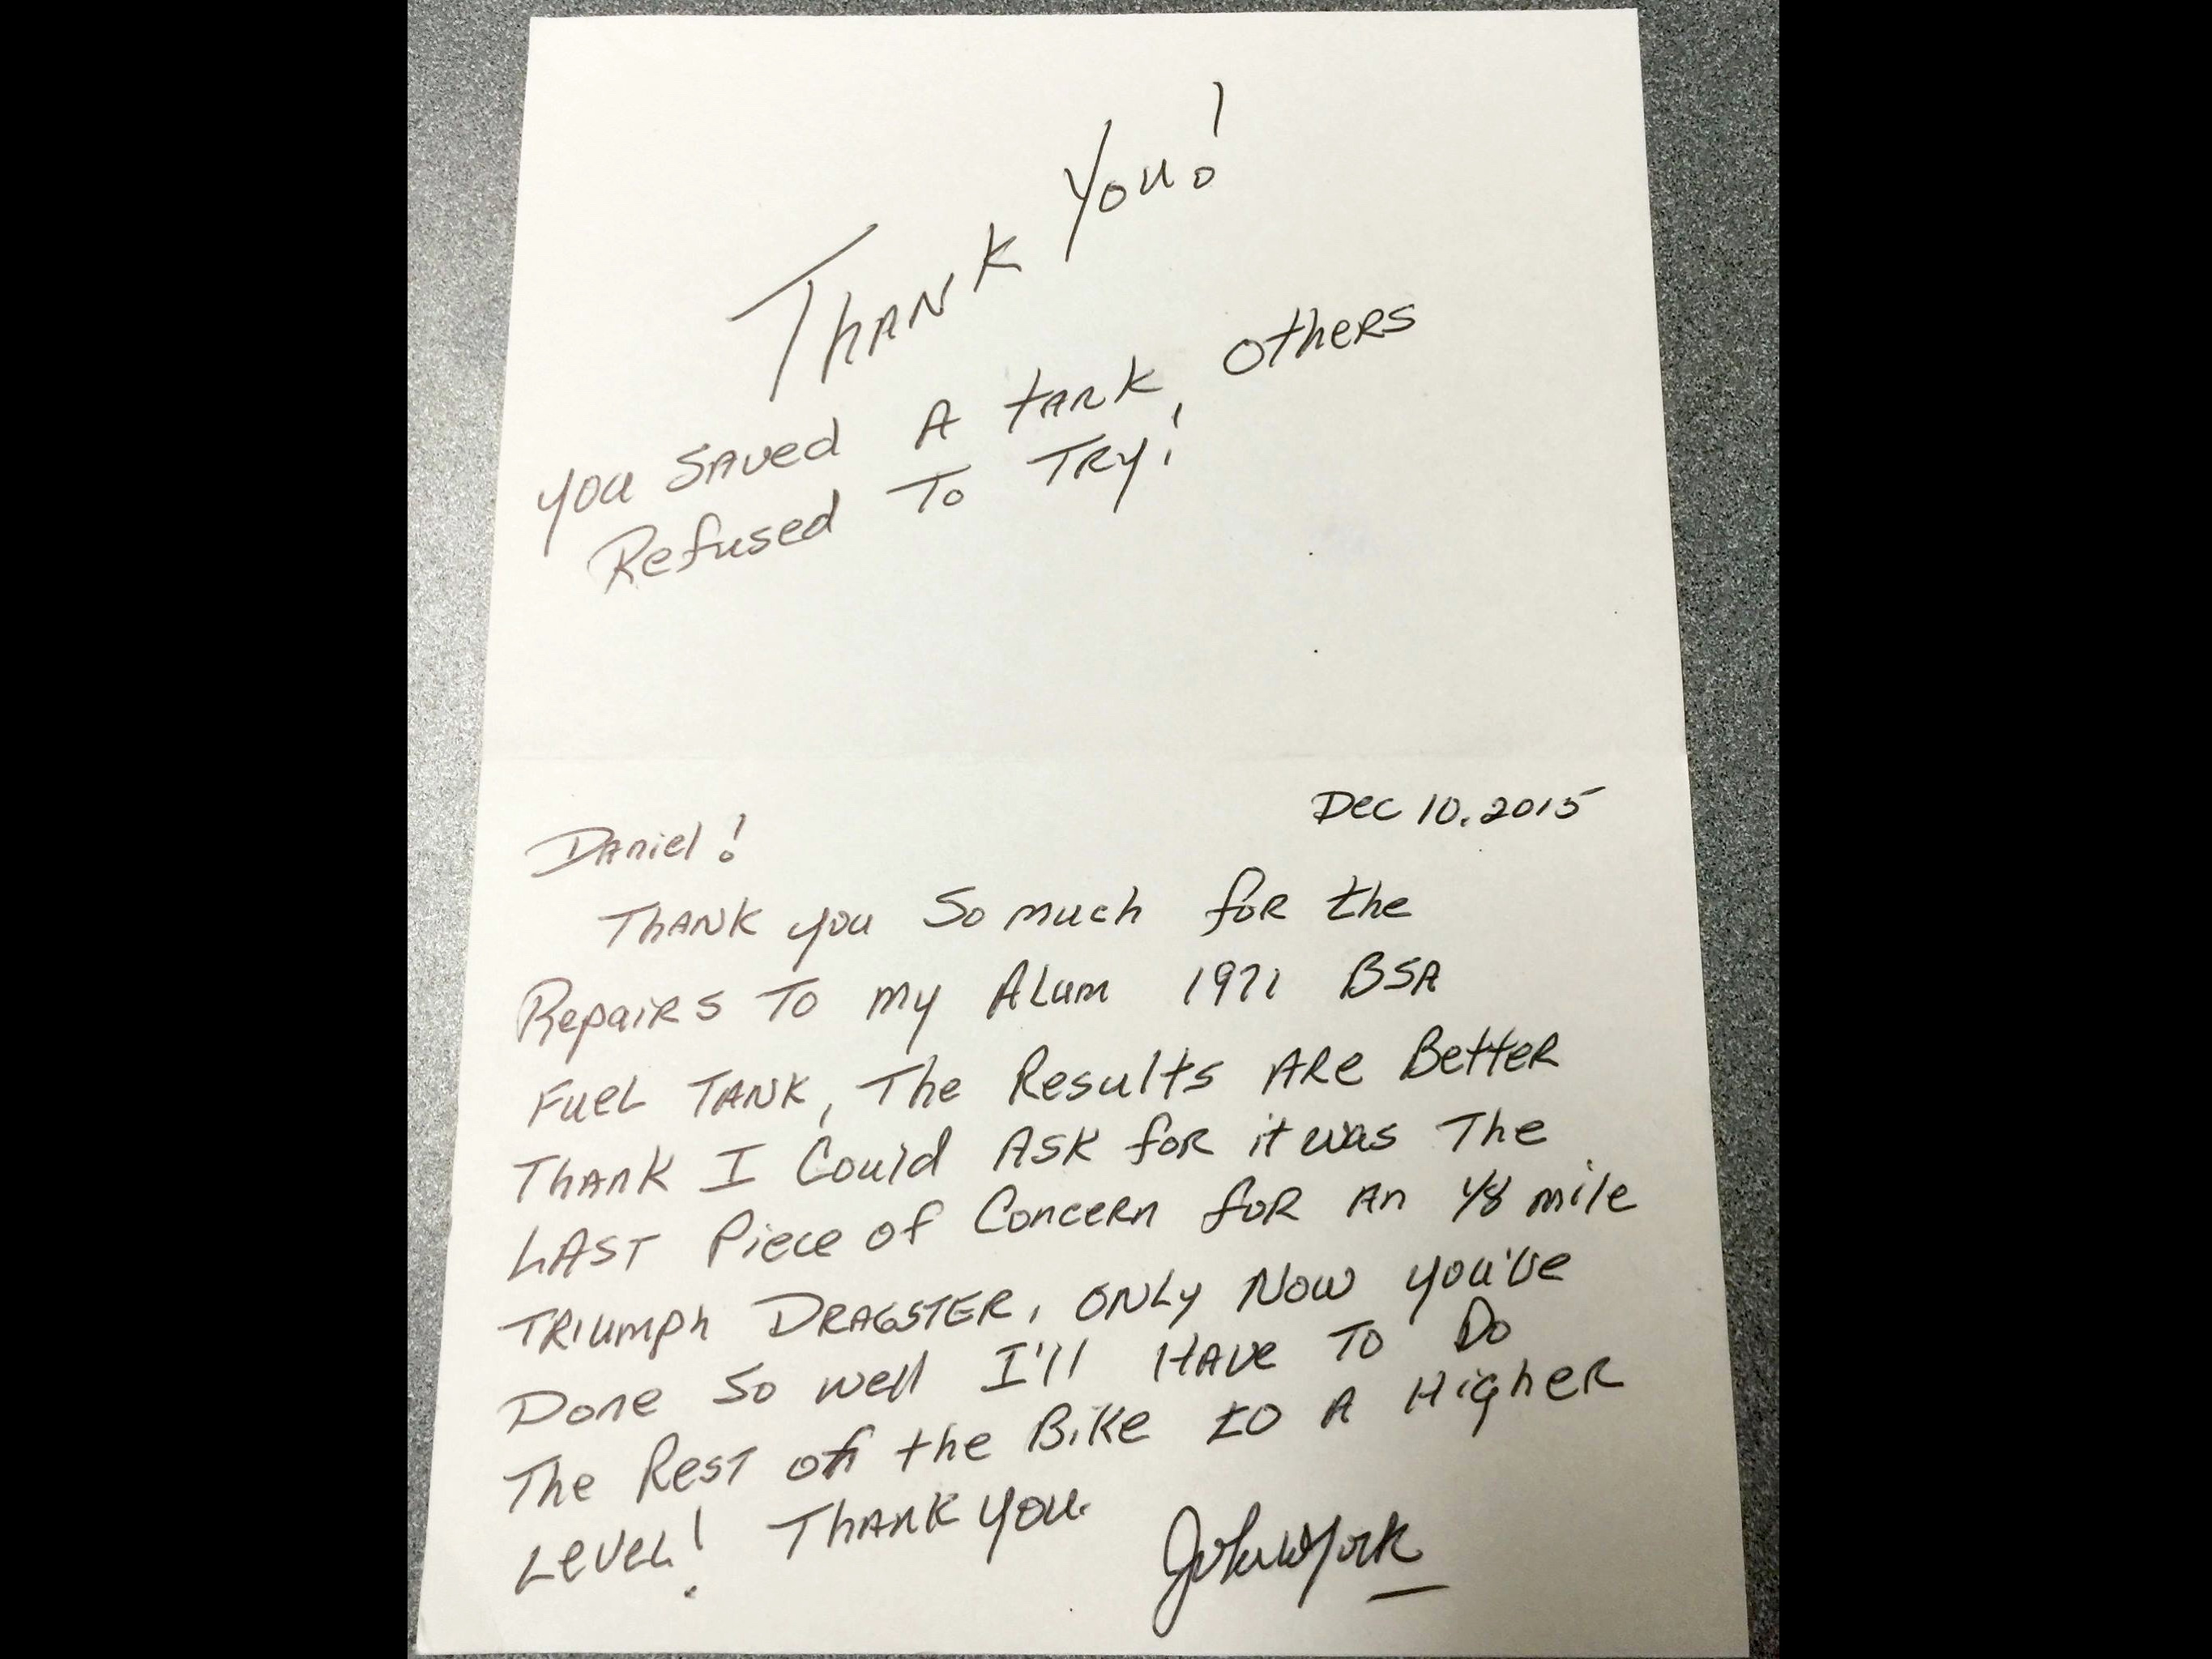 Thank You!
You Saved A tank, others
Refused To Try!
Dec 10. 2015
Daniel!
Thank you so much for the
Repairs To my Alum 1971 BSA
Fuel Tank, The Results Are Better
Thank I Could Ask for it was The
Last Piece of Concern for An 1/8 mile
Triumph Dragster, Only Now you've
Done So well I'll Have To Do
The Rest of the Bike to A Higher
Level! Thank You.
John W York